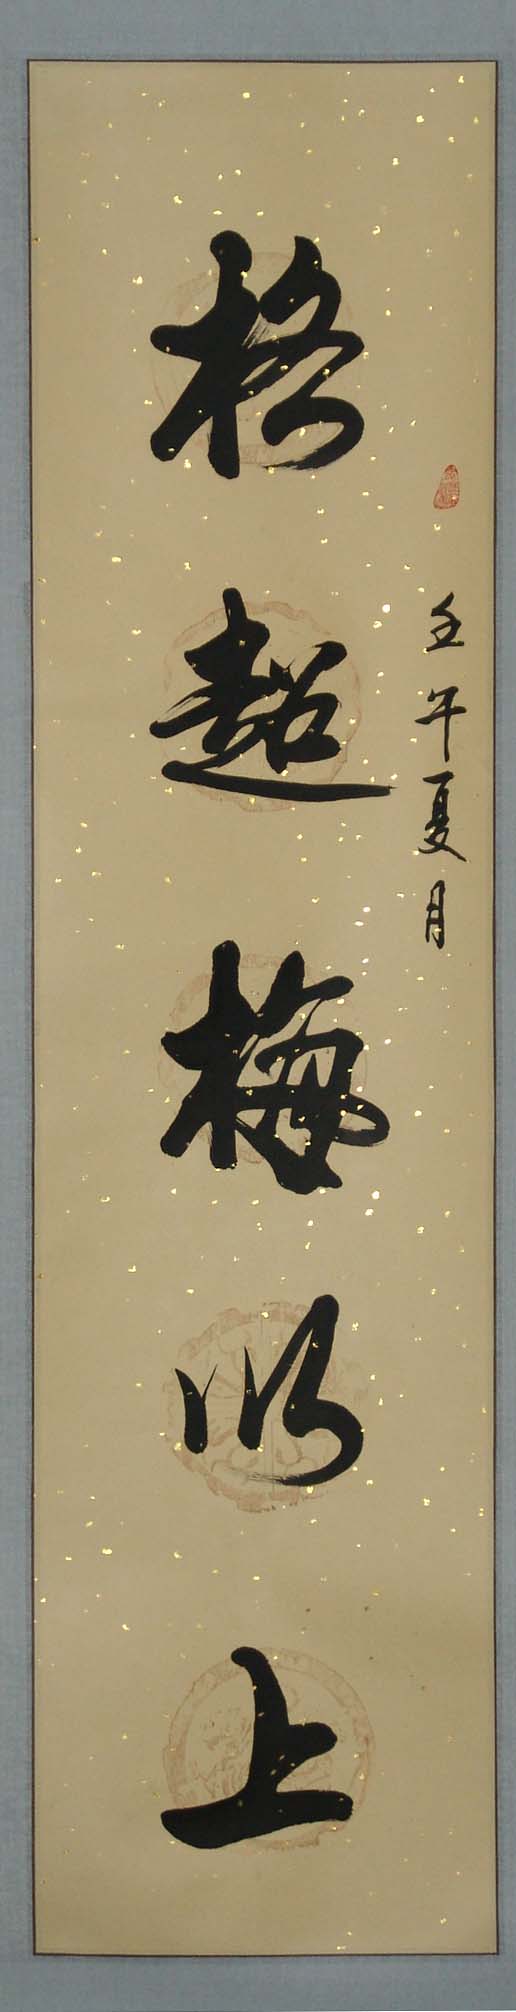 壬午夏月
格超梅以上